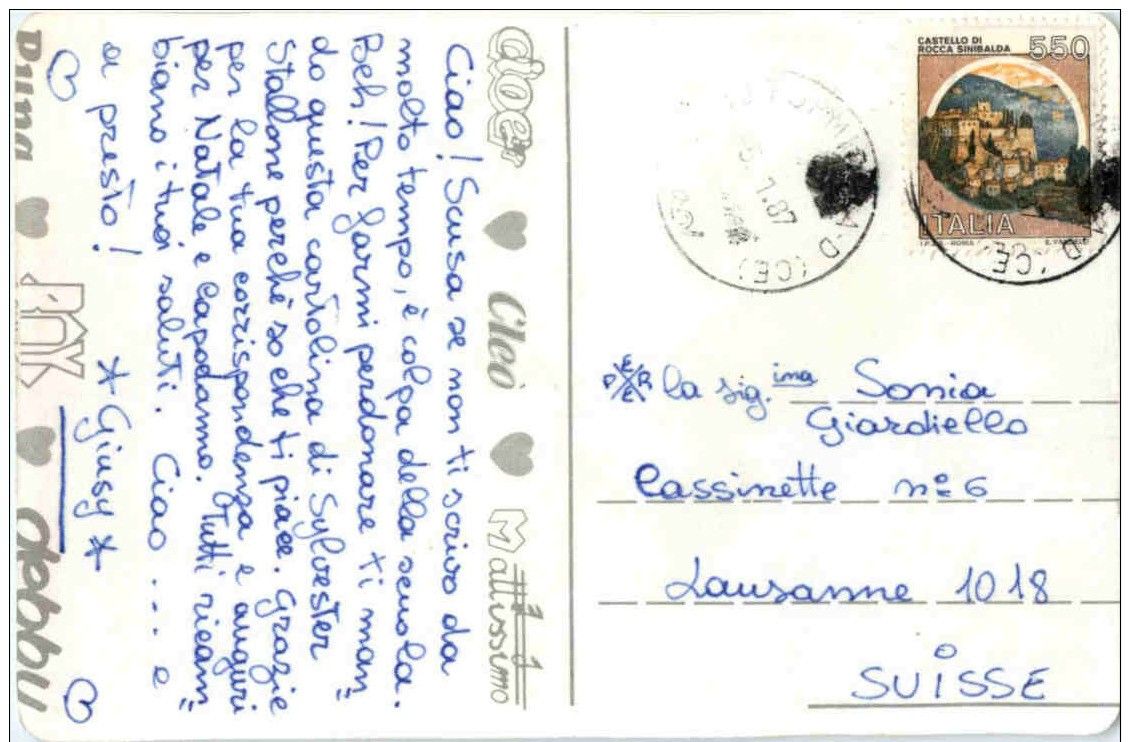 Ciao! Scusa se non ti scrivo da
molto tempo, è colpa della scuola.
Beh! Per farmi perdonare ti man
do questa cartolina di Sylvester
Stallone perchè so che ti piace. Grazie
per la tua corrispondenza e auguri
per Natale e Capodanno. Tutti ricam
biamo i tuoi saluti. Ciao... e
a presto!
*Giusy*
Cleò
Mattissimo
PINK
CASTELLO DI
ROCCA SINIBALDA
550
ITALIA
1.87
(CE)
PER
la sig.ina Sonia
Giardiello
Cassinette nº 6
Lausanne 1018
SUISSE